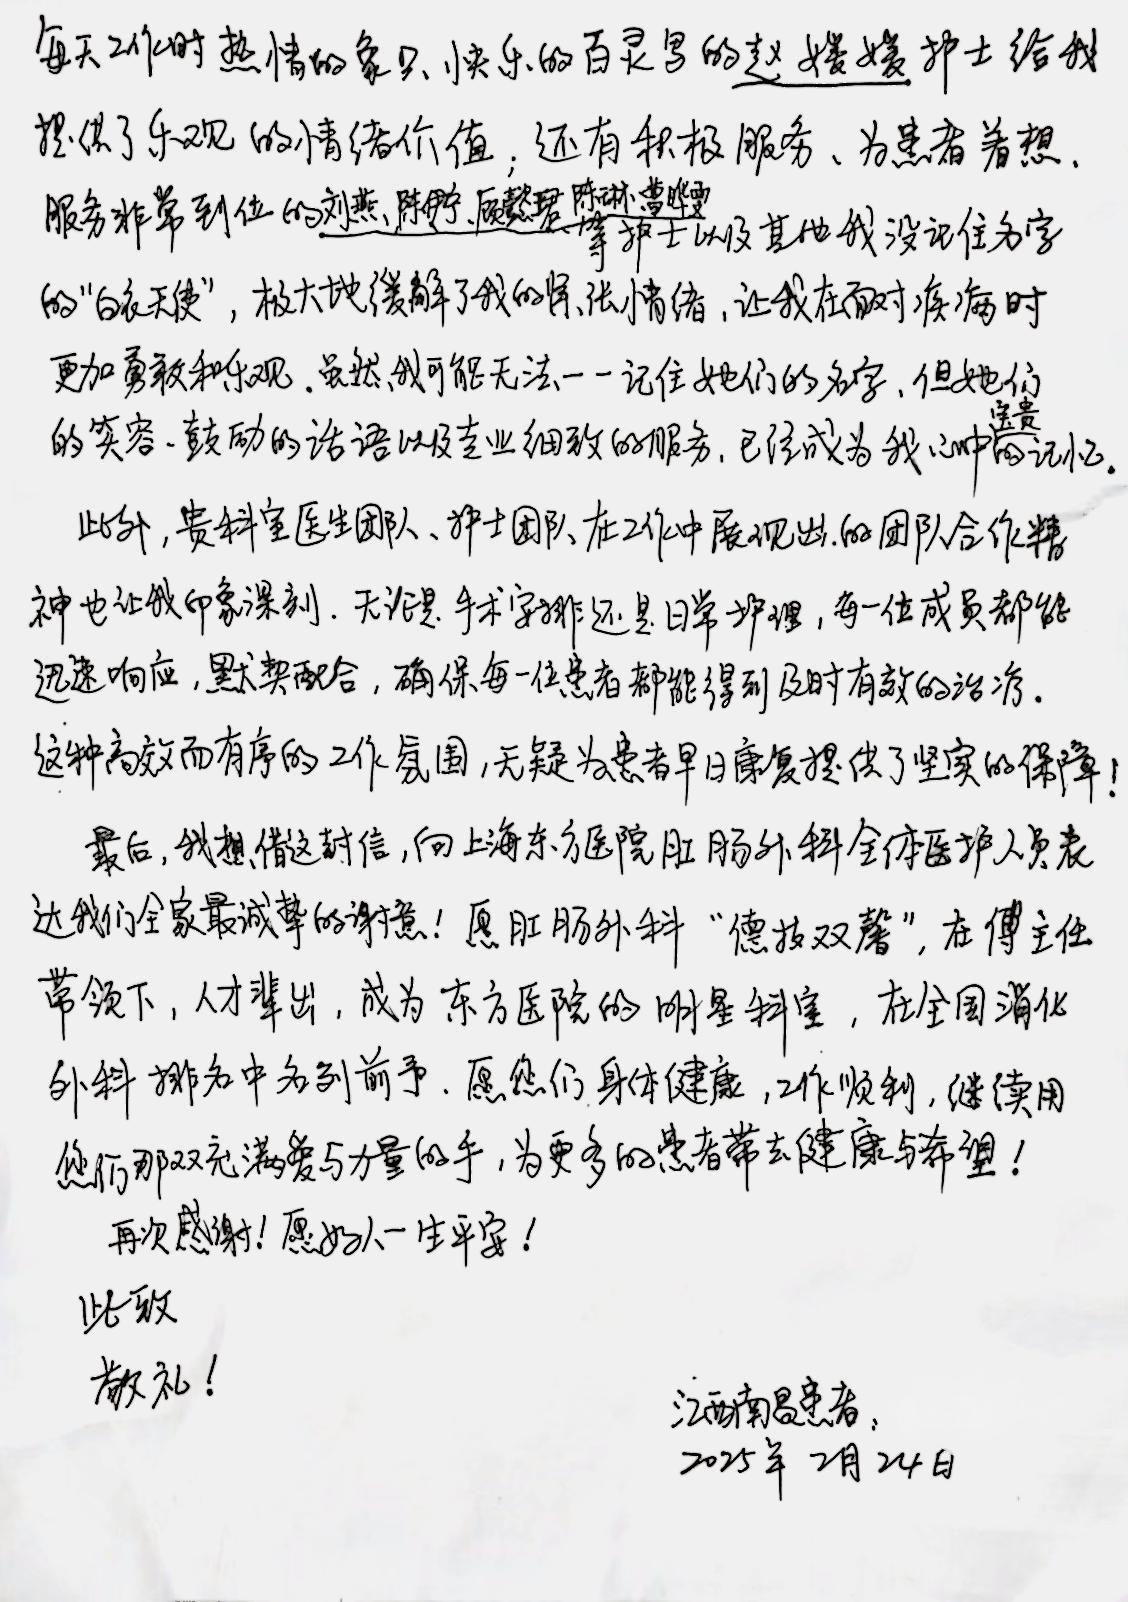 每天工作时热情的象只快乐的百灵鸟的赵媛媛护士给我
提供了乐观的情绪价值；还有积极服务、为患者着想、
服务非常到位的刘燕、陈伊宁、顾懿珺、陈琳、曹晔雯
等护士以及其他我没记住名字
的“白衣天使”，极大地缓解了我的紧张情绪，让我在面对疾病时
更加勇敢和乐观。虽然我可能无法一一记住她们的名字，但她们
的笑容、鼓励的话语以及专业细致的服务，已经成为我心中宝贵的记忆。
此外，贵科室医生团队、护士团队在工作中展现出的团队合作精
神也让我印象深刻。无论是手术安排还是日常护理，每一位成员都能
迅速响应，默契配合，确保每一位患者都能得到及时有效的治疗。
这种高效而有序的工作氛围，无疑为患者早日康复提供了坚实的保障！
最后，我想借这封信，向上海东方医院肛肠外科全体医护人员表
达我们全家最诚挚的谢意！愿肛肠外科“德技双馨”，在傅主任
带领下，人才辈出，成为东方医院的明星科室，在全国消化
外科排名中名列前予。愿您们身体健康，工作顺利，继续用
您们那双充满爱与力量的手，为更多的患者带去健康与希望！
再次感谢！愿好人一生平安！
此致
敬礼！
江西南昌患者：
2025年2月24日